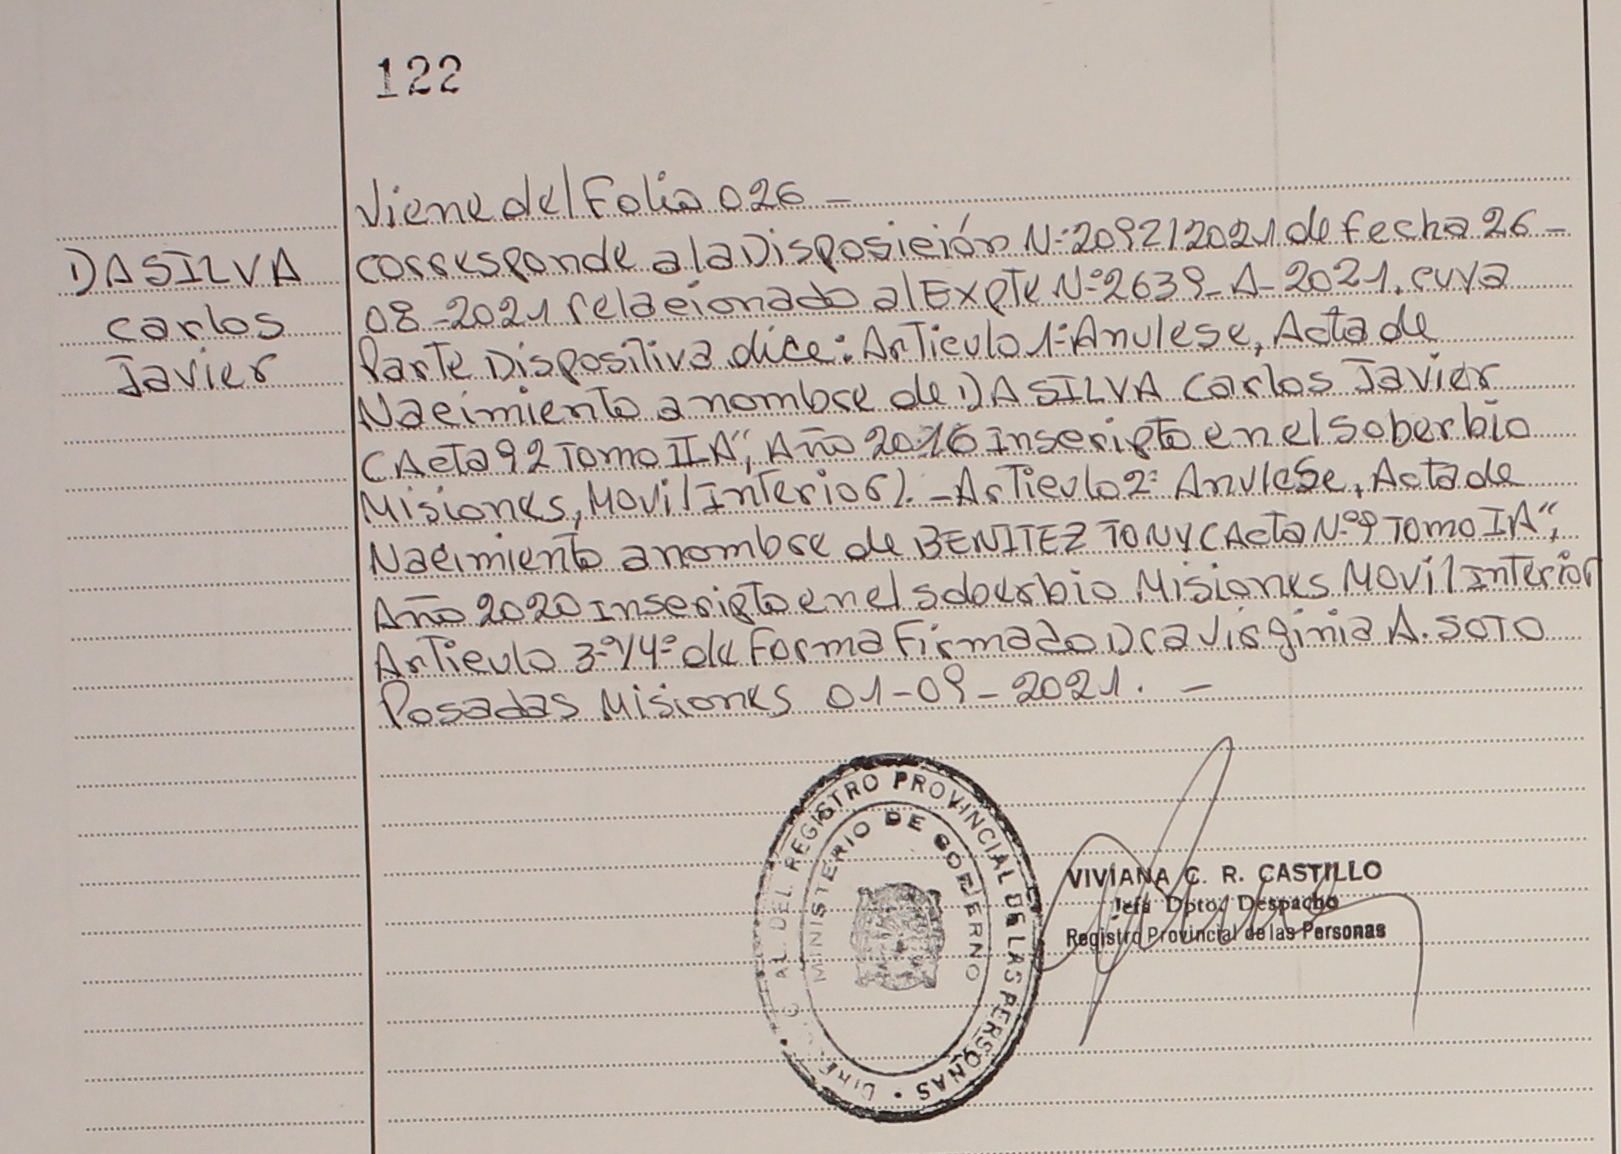 122
Viene del Folio 026 -
DA SILVA
Carlos
Javier
Corresponde a la Disposición N: 2092/2021 de fecha 26 -
08 - 2021 relacionado al Expte N° 2639 - A - 2021. cuya
Parte Dispositiva dice: Articulo 1: Anulese, Acta de
Nacimiento a nombre de DA SILVA Carlos Javier
(Acta 92 Tomo II A", Año 2016 Inscripto en el Soberbio
Misiones, Movil Interior). - Articulo 2: Anulese, Acta de
Nacimiento a nombre de BENITEZ TONY (Acta N° 9 Tomo I A",
Año 2020 Inscripto en el Soberbio Misiones Movil Interior
Articulo 3° y 4° de Forma Firmado Dra Virginia A. SOTO
Posadas Misiones 01 - 09 - 2021. -
AL DEL REGISTRO PROVINCIAL DE LAS PERSONAS
MINISTERIO DE GOBIERNO
VIVIANA C. R. CASTILLO
Jefa Dpto. Despacho
Registro Provincial de las Personas